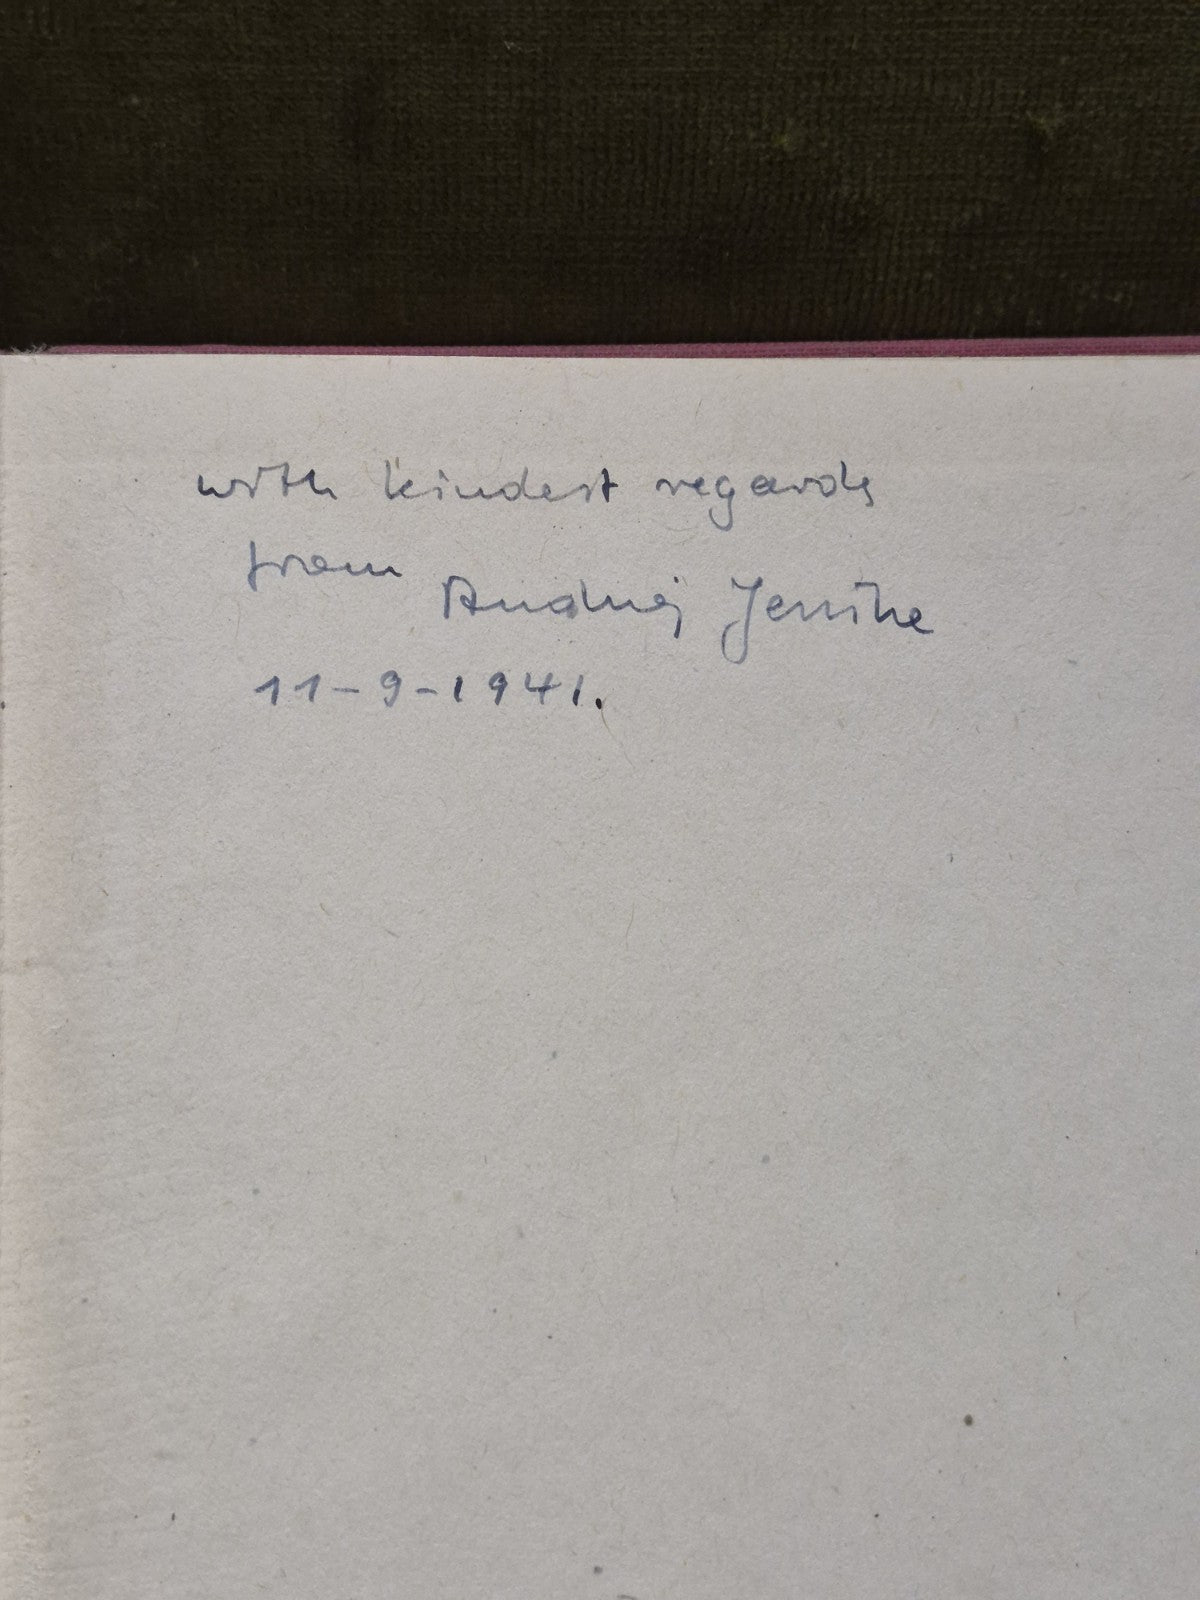 with kindest regards
from Andrej
11-9-1941.